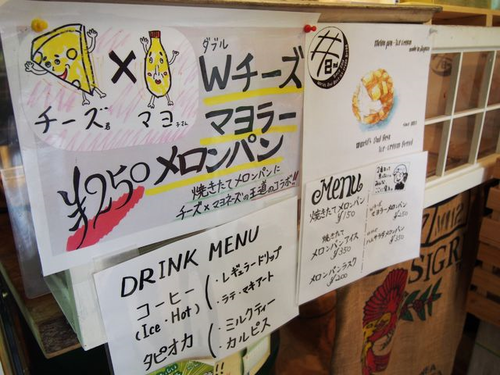 チーズ君
×
マヨさん
ダブル
Wチーズ
マヨラー
メロンパン
¥250
焼きたてメロンパンに
チーズ×マヨネーズの王道のコラボ!!
Ice cream Bread
Menu
焼きたてメロンパン
¥150
焼きたて
メロンパンアイス
¥350
メロンパンラスク
¥200
DRINK MENU
コーヒー
(Ice・Hot)
・レギュラードリップ
・ラテ・マキアート
タピオカ
・ミルクティー
・カルピス
SIGRI